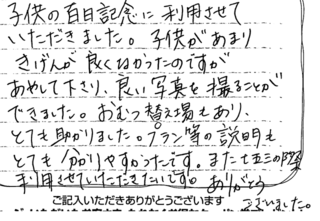 子供の百日記念に利用させて
いただきました。子供があまり
きげんが良くなかったのですが
あやして下さり、良い写真を撮ることが
できました。おむつ替え場もあり、
とても助かりました。プラン等の説明も
とても分りやすかったです。また七五三の際
利用させていただきたいです。ありがとう
ございました。
ご記入いただきありがとうございます